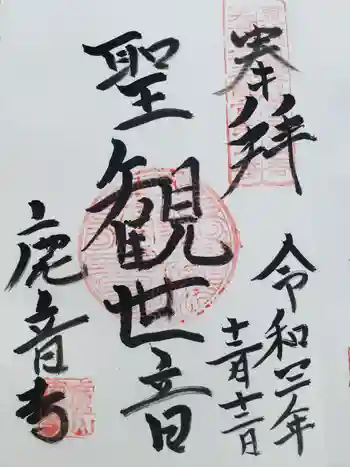 奉拝
令和三年
十二月十二日
聖観世音
鹿音寺